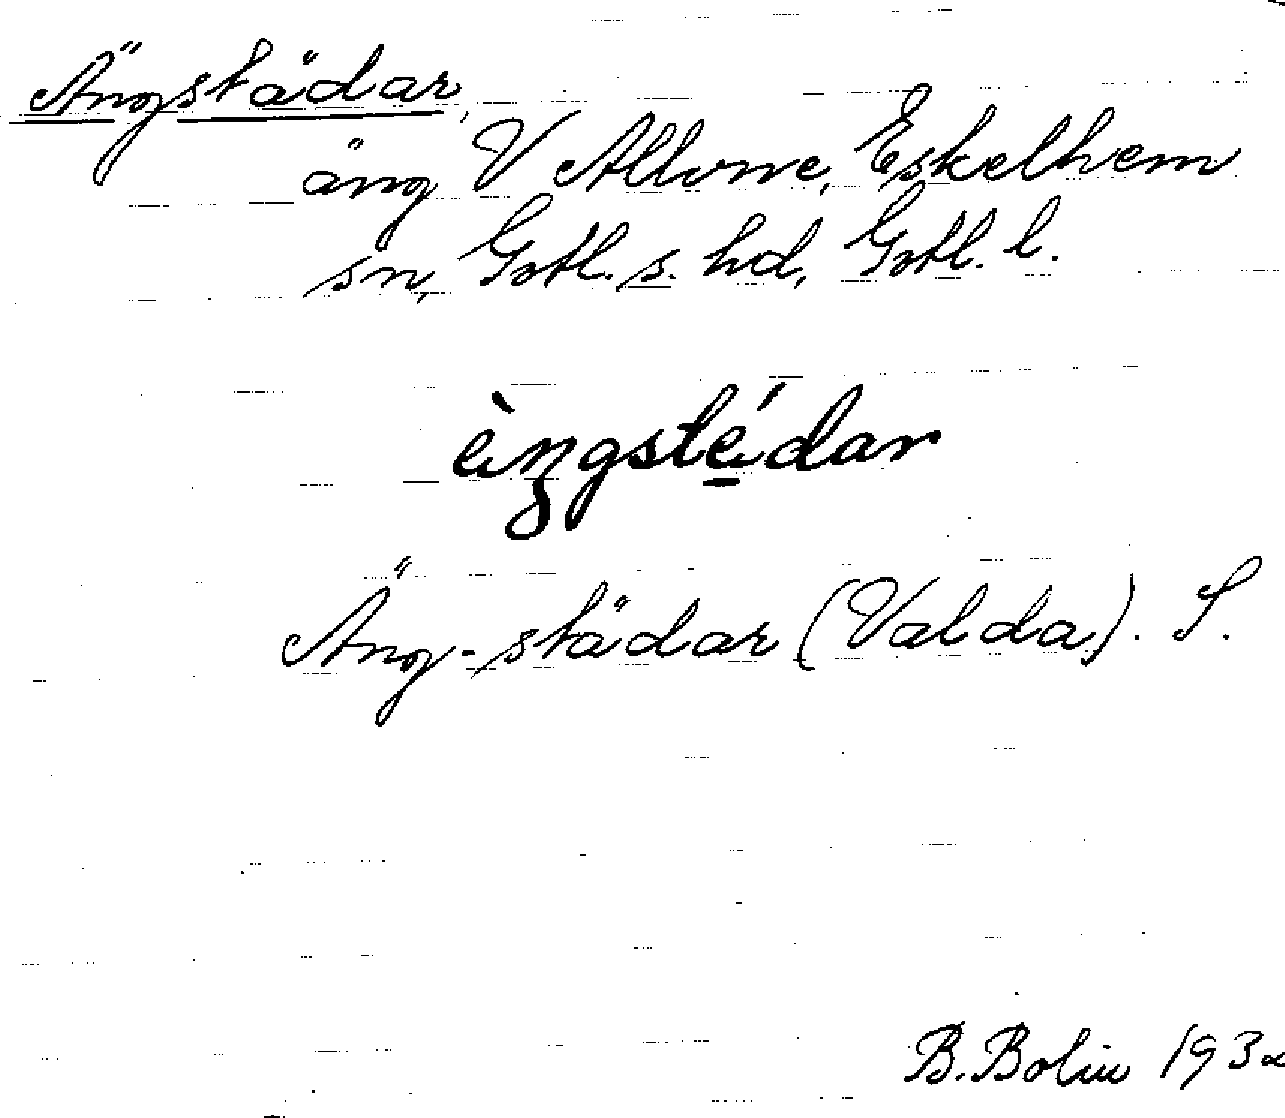 Ängstädar,
äng V Allvne, Eskelhem
sn, Gotl. s. hd, Gotl. l.
èŋgsté̱dar
Äng-städar (Valda). S.
B. Bolin 193